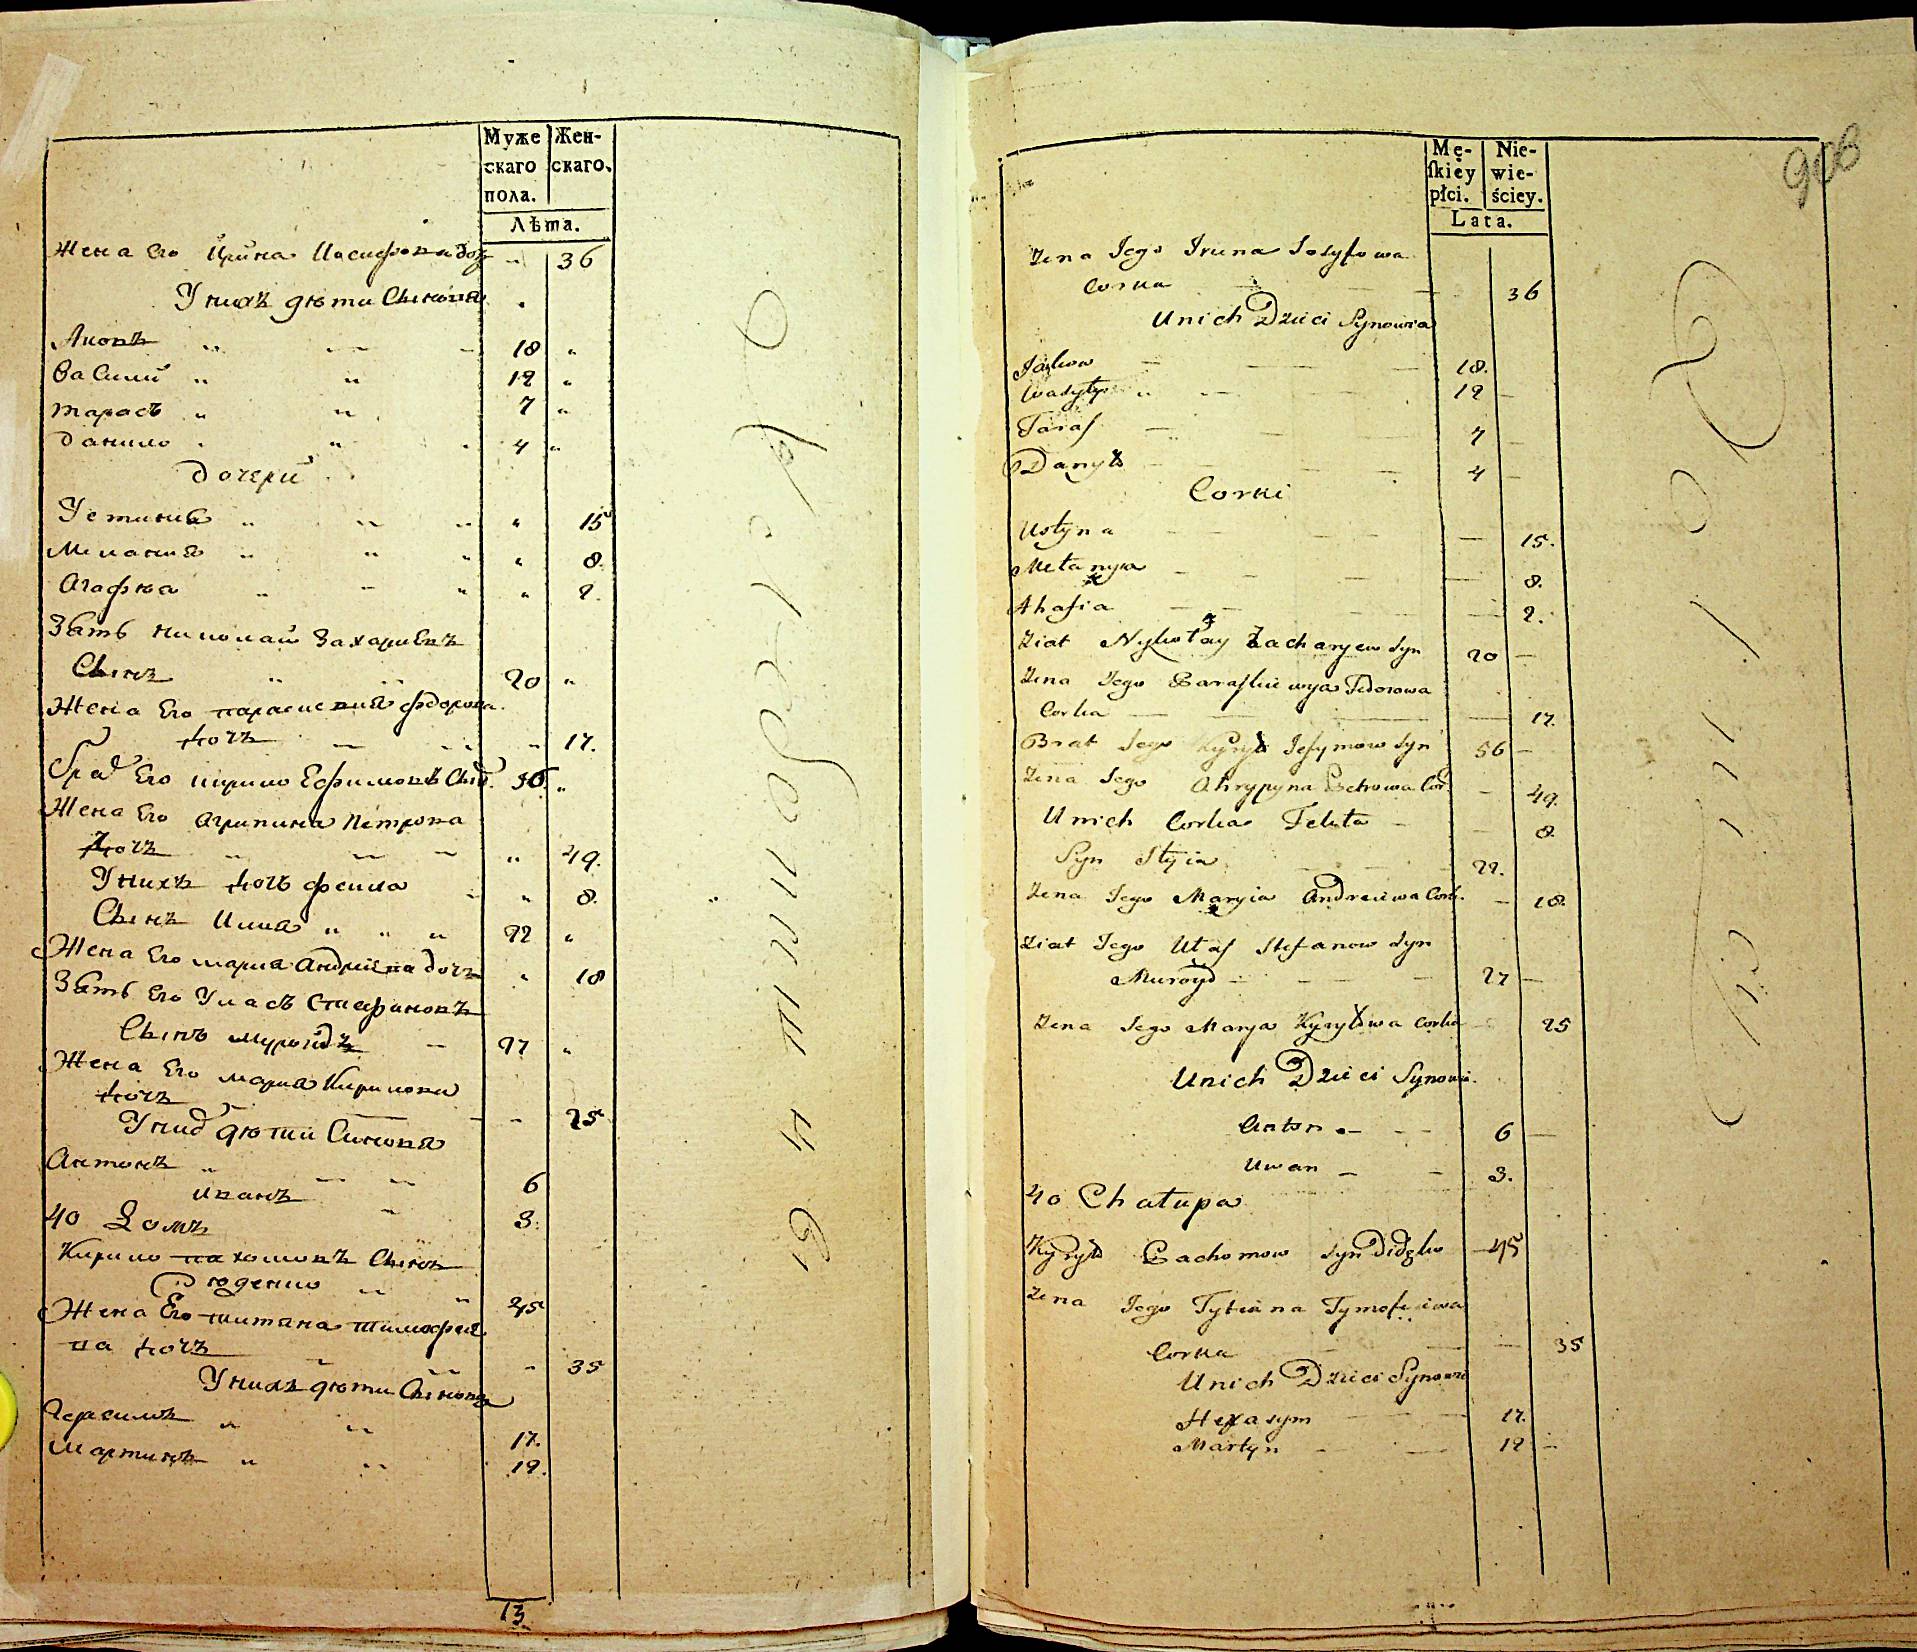 Муже
скаго
пола.
Жен-
скаго.
Лѣта.
Жена Его Ирина Иосифова доч " 36
У нихъ дѣти Сыновя "
Яковъ " 18 "
Василий " 12 "
тарасъ " 7 "
данило " 4 "
дочери
Устиния " " 15
Мелания " " 8.
Агафия " " 2.
Зять Николай Захариевъ
Сынъ " 20 "
Жена Его параскевия федорова
дочъ " 17.
брад Его кирило Ефимовъ Сын. 56. "
Жена Его агрипина Петрова
дочъ " " 49.
У нихъ дочь фекла " 8.
Сынъ Илия " " " 22 "
Жена Его мария Андриева дочъ " 18
Зять Его Уласъ Стефановъ
Сынъ муройдъ 27 "
Жена Его мария Кирилова
дочъ - 25
У них дѣти Синовя
Антонъ " 6
иванъ 3.
40 Домъ
Кирило пахомовъ Сынъ
дюденко " 45
Жена Его титяна тимофие
ва дочъ - 35
У нихъ дѣти Сыновя
Герасимъ " 17.
Мартинъ " 12.
13
906
Mę-
skiey
płci.
Nie-
wie-
ściey.
Lata.
Żena Jego Iruna Josyfowa
Corka 36
U nich Dzieci Synowia
Jakow 18.
Wasyly 12
Taras 7
Danyło 4
Corki
Ustyna 15.
Mełanya 8.
Ahafia 2.
Ziat Nykołay Zacharyew Syn 20
Zena Jego Paraskiewya Fedorowa
Corka 17.
Brat Jego Kyryło Jefymow Syn 56
Zena Jego Ahrypyna Petrowa Cor. 49.
U nich Corka Tekla 8
Syn Ilyia 22.
Zena Jego Maryia Andreiewa Cork. 18.
Ziat Jego Ułas Stefanow Syn
Muroyd 27
Zena Jego Marya Kyryłowa Corka 25
U nich Dzieci Synowi.
Anton 6
Uwan 3.
40 Chałupa
Kyryło Pachomow Syn Didęko 45
Zena Jego Tytiana Tymofeiewa
Corka 35
U nich Dzieci Synowi
Herasym 17.
Martyn 12